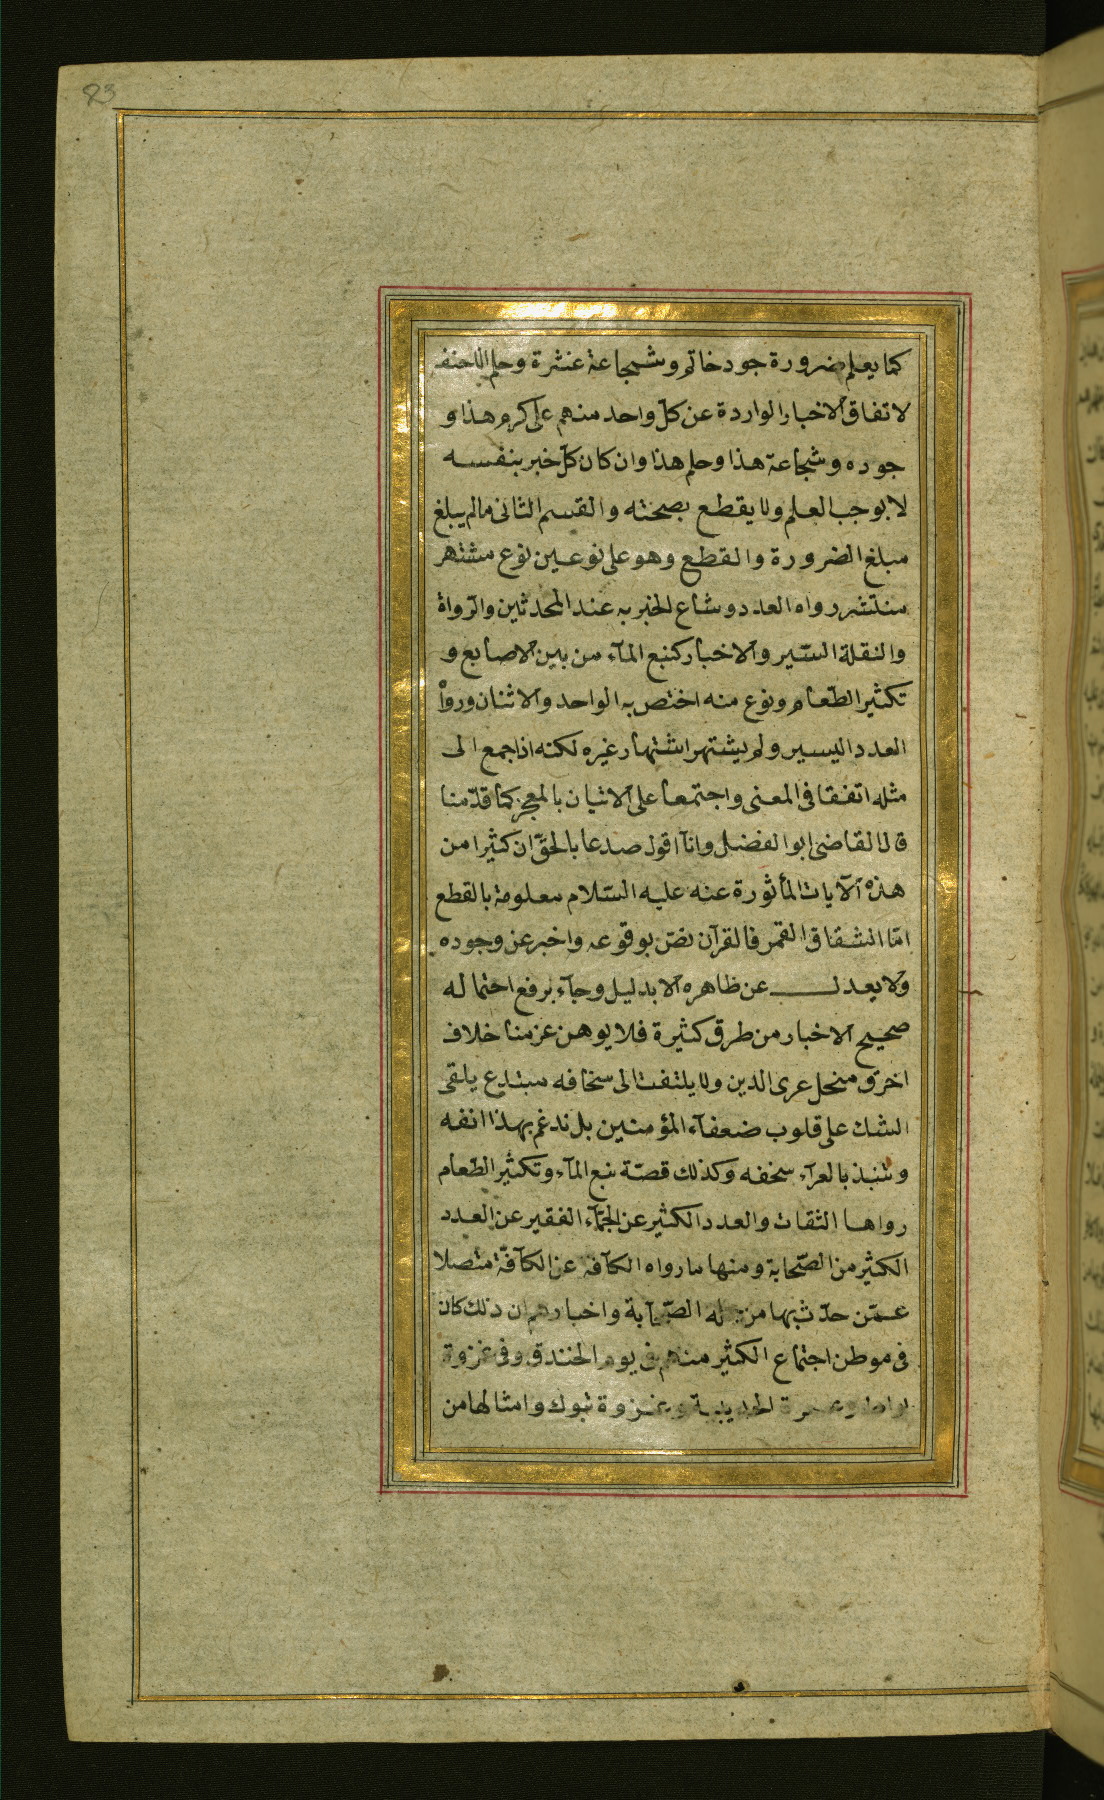 83
كما يعلم ضرورة جود خاتم وشجاعة عنثرة وحلم اللحنف
لاتفاق الاخبار الواردة عن كلّ واحد منهم على كرم هذا و
جوده وشجاعة هذا وحلم هذا وان كان كلّ خبر بنفسه
لا يوجب العلم ولا يقطع بصحته والقسم الثانى ما لم يبلغ
مبلغ الضرورة والقطع وهو على نوعين نوع مشتهر
منتشر رواه العدد وشاع الخبر به عند المحدثين والرّواة
والنقلة السّير والاخبار كنبع المآء من بين الاصابع و
تكثير الطّعام ونوع منه اختص به الواحد والاثنان ورواْ
العدد اليسير ولم يشتهر اشتهار غيره لكنه اذا جمع الى
مثله اتفقا فى المعنى واجتمعا على الاتيان بالمعجز كما قدّمنا
قال القاضى ابو الفضل وانآ اقول صدعا بالحقّ ان كثيرا من
هذه الآيات المأثورة عنه عليه السّلام معلومة بالقطع
امّا انشقاق القمر فالقرآن نصّ بوقوعه واخبر عن وجوده
ولا يعدل عن ظاهره الا بدليل وجآء برفع احتماله
صحيح الاخبار من طرق كثيرة فلا يوهن عزمنا خلاف
اخرق منحل عرى الدين ولا يلتفت الى سخافه مبتدع يلقى
الشك على قلوب ضعفآء المؤمنين بل ندغم بهذا انفه
وننبذ بالعرآء سخفه وكذلك قصّة نبع المآء وتكثير الطّعام
رواها الثقات والعدد الكثير عن الجمّآء الفقير عن العدد
الكثير من الصّحابة ومنها ما رواه الكآفة عن الكآفّة متصلا
عمّن حدّث بها من جملة الصّحابة واخبارهم ان ذلك كان
فى موطن اجتماع الكثير منهم فى يوم الخندق وفى غزوة
بواط وعمرة الحديبية وغزوة تبوك وامثالها من